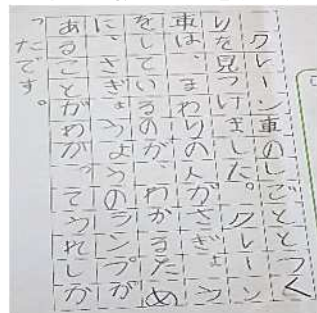 クレーン車のしごととつく
りを見つけました。クレーン
車は、まわりの人がさぎょう
をしているのが、わかるため
に、さぎょうようのランプが
あることがわかってうれしか
ったです。